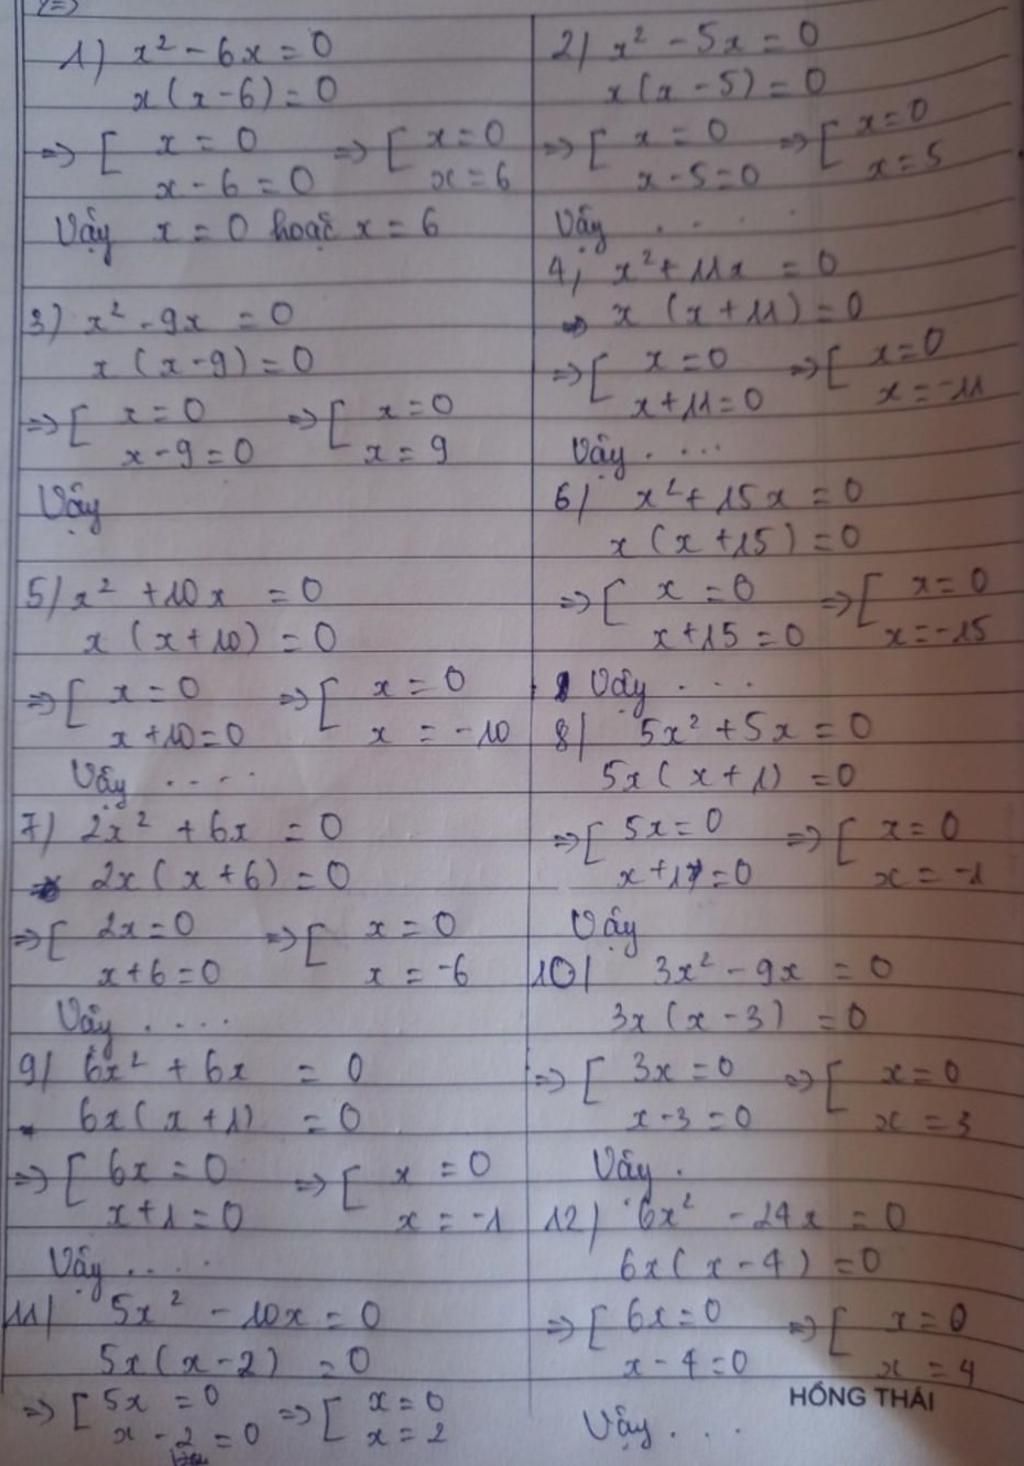 1) x² - 6x = 0
x(x-6) = 0
=> [ x = 0 => [ x = 0
x - 6 = 0 x = 6
Vậy x = 0 hoặc x = 6
3) x² - 9x = 0
x (x-9) = 0
=> [ x = 0 => [ x = 0
x - 9 = 0 x = 9
Vậy
5) x² + 10x = 0
x (x+10) = 0
=> [ x = 0 => [ x = 0
x + 10 = 0 x = -10
Vậy ....
7) 2x² + 6x = 0
2x (x+6) = 0
=> [ 2x = 0 => [ x = 0
x + 6 = 0 x = -6
Vậy ....
9) 6x² + 6x = 0
6x (x+1) = 0
=> [ 6x = 0 => [ x = 0
x + 1 = 0 x = -1
Vậy ....
11) 5x² - 10x = 0
5x (x-2) = 0
=> [ 5x = 0 => [ x = 0
x - 2 = 0 x = 2
2) x² - 5x = 0
x(x-5) = 0
=> [ x = 0 => [ x = 0
x - 5 = 0 x = 5
Vậy ....
4) x² + 11x = 0
x (x+11) = 0
=> [ x = 0 => [ x = 0
x + 11 = 0 x = -11
Vậy ....
6) x² + 15x = 0
x (x+15) = 0
=> [ x = 0 => [ x = 0
x + 15 = 0 x = -15
Vậy ...
8) 5x² + 5x = 0
5x (x+1) = 0
=> [ 5x = 0 => [ x = 0
x + 1 = 0 x = -1
Vậy
10) 3x² - 9x = 0
3x (x-3) = 0
=> [ 3x = 0 => [ x = 0
x - 3 = 0 x = 3
Vậy .
12) 6x² - 24x = 0
6x (x-4) = 0
=> [ 6x = 0 => [ x = 0
x - 4 = 0 x = 4
HỒNG THÁI
Vậy ...